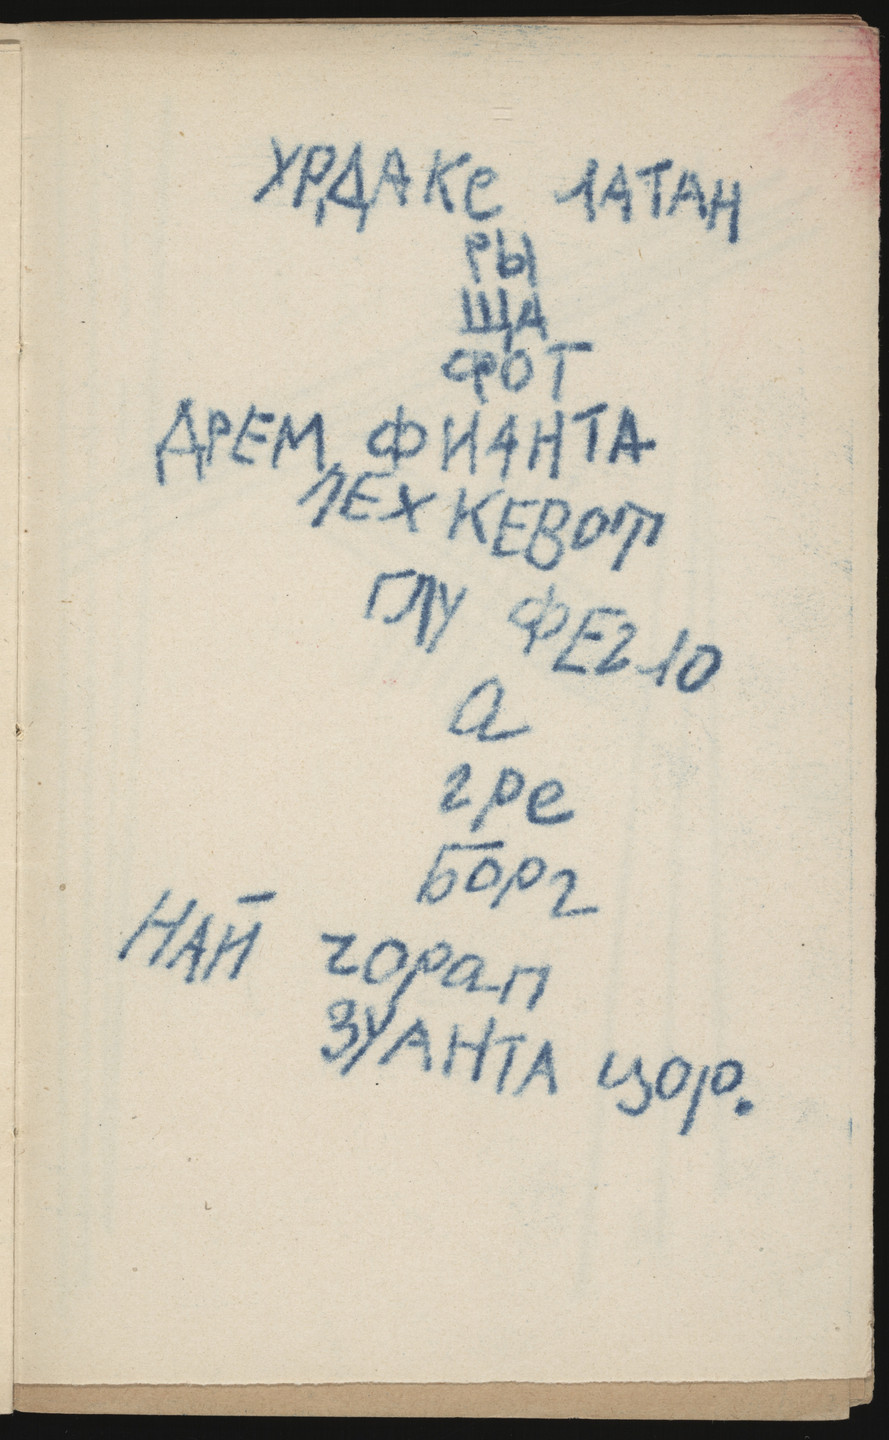 ХРДАКе ЛАТАН
РЫ
ЩА
ФОТ
ДРЕМ ФИАНТА
ЛЕХ КЕВОТ
ГЛУ ФЕгЛО
а
гре
Борг
НАЙ горап
ЗУАНТА цор.